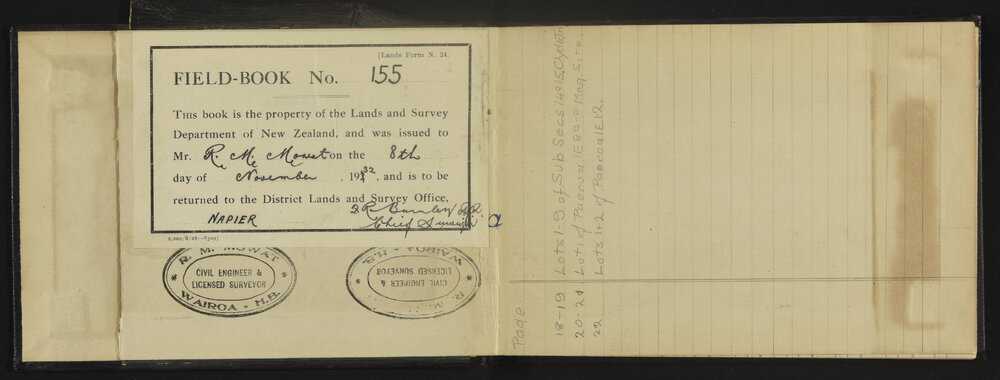 (Lands Form N. 24.
FIELD-BOOK No. 155
THIS book is the property of the Lands and Survey
Department of New Zealand, and was issued to
Mr. R. M. Mowat on the 8th
day of November, 1932, and is to be
returned to the District Lands and Survey Office,
NAPIER
Chief Surveyor
1,000/8/26—8309)
R. M. MOWAT
CIVIL ENGINEER &
LICENSED SURVEYOR
WAIROA - H.B.
R. M.
CIVIL ENGINEER &
LICENSED SURVEYOR
WAIROA - H.B.
Page
18-19 Lots 1-9 of Sub Secs 14 & 15, Clydebank
20-21 Lot 1 of Paeroa 1E
22 Lots 1 & 2 of Paeroa 1E 12.